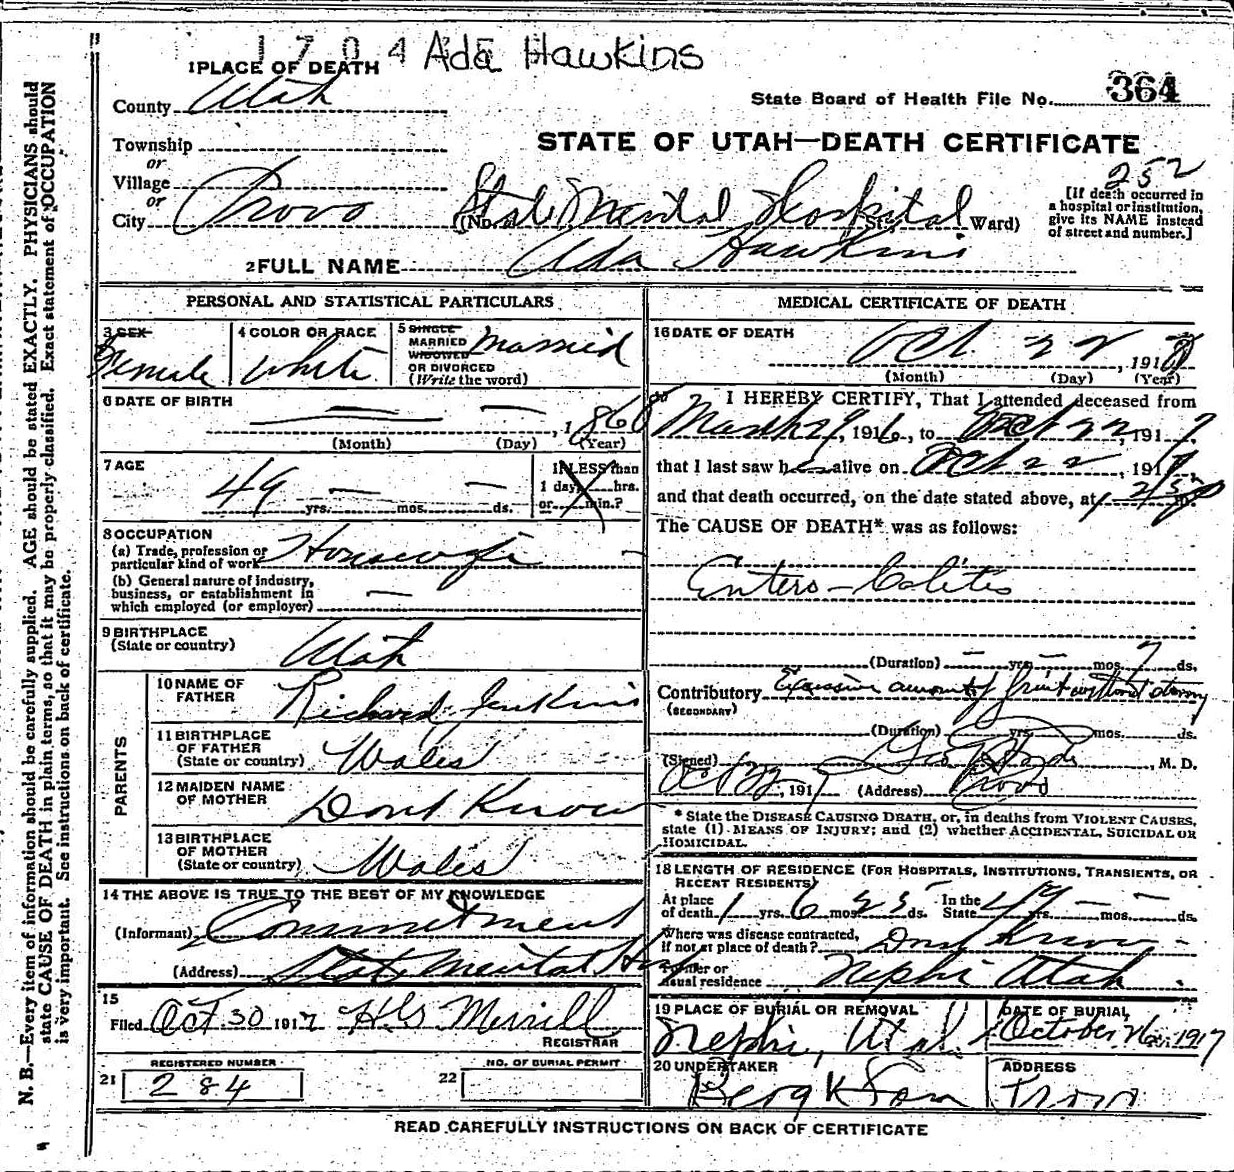 1704 Ada Hawkins
1 PLACE OF DEATH
County Utah
State Board of Health File No. 364
Township
or
Village
or
City Provo
STATE OF UTAH—DEATH CERTIFICATE
252
(No. State Mental Hospital St. Ward)
[If death occurred in
a hospital or institution,
give its NAME instead
of street and number.]
2 FULL NAME Ada Hawkins
PERSONAL AND STATISTICAL PARTICULARS
3 SEX
Female
4 COLOR OR RACE
White
5 SINGLE
MARRIED
WIDOWED
OR DIVORCED
(Write the word)
Married
6 DATE OF BIRTH
— — , 1868
(Month) (Day) (Year)
7 AGE
49 yrs. — mos. — ds.
If LESS than
1 day, hrs.
or min.?
8 OCCUPATION
(a) Trade, profession or
particular kind of work Housewife
(b) General nature of industry,
business, or establishment in
which employed (or employer) —
9 BIRTHPLACE
(State or country) Utah
PARENTS
10 NAME OF
FATHER Richard Jenkins
11 BIRTHPLACE
OF FATHER
(State or country) Wales
12 MAIDEN NAME
OF MOTHER Dont Know
13 BIRTHPLACE
OF MOTHER
(State or country) Wales
14 THE ABOVE IS TRUE TO THE BEST OF MY KNOWLEDGE
(Informant) Commitment
(Address) State Mental Hosp
15
Filed Oct 30 1917 Merrill
REGISTRAR
REGISTERED NUMBER
21 284
NO. OF BURIAL PERMIT
22
MEDICAL CERTIFICATE OF DEATH
16 DATE OF DEATH
Oct. 22, 1917
(Month) (Day) (Year)
I HEREBY CERTIFY, That I attended deceased from
March 29, 1916, to Oct 22, 1917
that I last saw her alive on Oct 22 1917
and that death occurred, on the date stated above, at m.
The CAUSE OF DEATH* was as follows:
Entero-Colitis
(Duration) — yrs. — mos. 7 ds.
Contributory Excessive amount of fruit without
(SECONDARY)
(Duration) yrs. mos. ds.
(Signed) Geo , M. D.
Oct 22, 1917 (Address) Provo
* State the DISEASE CAUSING DEATH, or, in deaths from VIOLENT CAUSES,
state (1) MEANS OF INJURY; and (2) whether ACCIDENTAL, SUICIDAL OR
HOMICIDAL.
18 LENGTH OF RESIDENCE (FOR HOSPITALS, INSTITUTIONS, TRANSIENTS, OR
RECENT RESIDENTS)
At place
of death 1 yrs. 6 mos. 25 ds. In the
State 49 yrs. — mos. — ds.
Where was disease contracted,
if not at place of death? Dont Know
Former or
usual residence Nephi Utah
19 PLACE OF BURIAL OR REMOVAL
Nephi, Utah
DATE OF BURIAL
October 26, 1917
20 UNDERTAKER
Berg & Son
ADDRESS
Provo
READ CAREFULLY INSTRUCTIONS ON BACK OF CERTIFICATE
N. B.—Every item of information should be carefully supplied. AGE should be stated EXACTLY. PHYSICIANS should
state CAUSE OF DEATH in plain terms, so that it may be properly classified. Exact statement of OCCUPATION
is very important. See instructions on back of certificate.